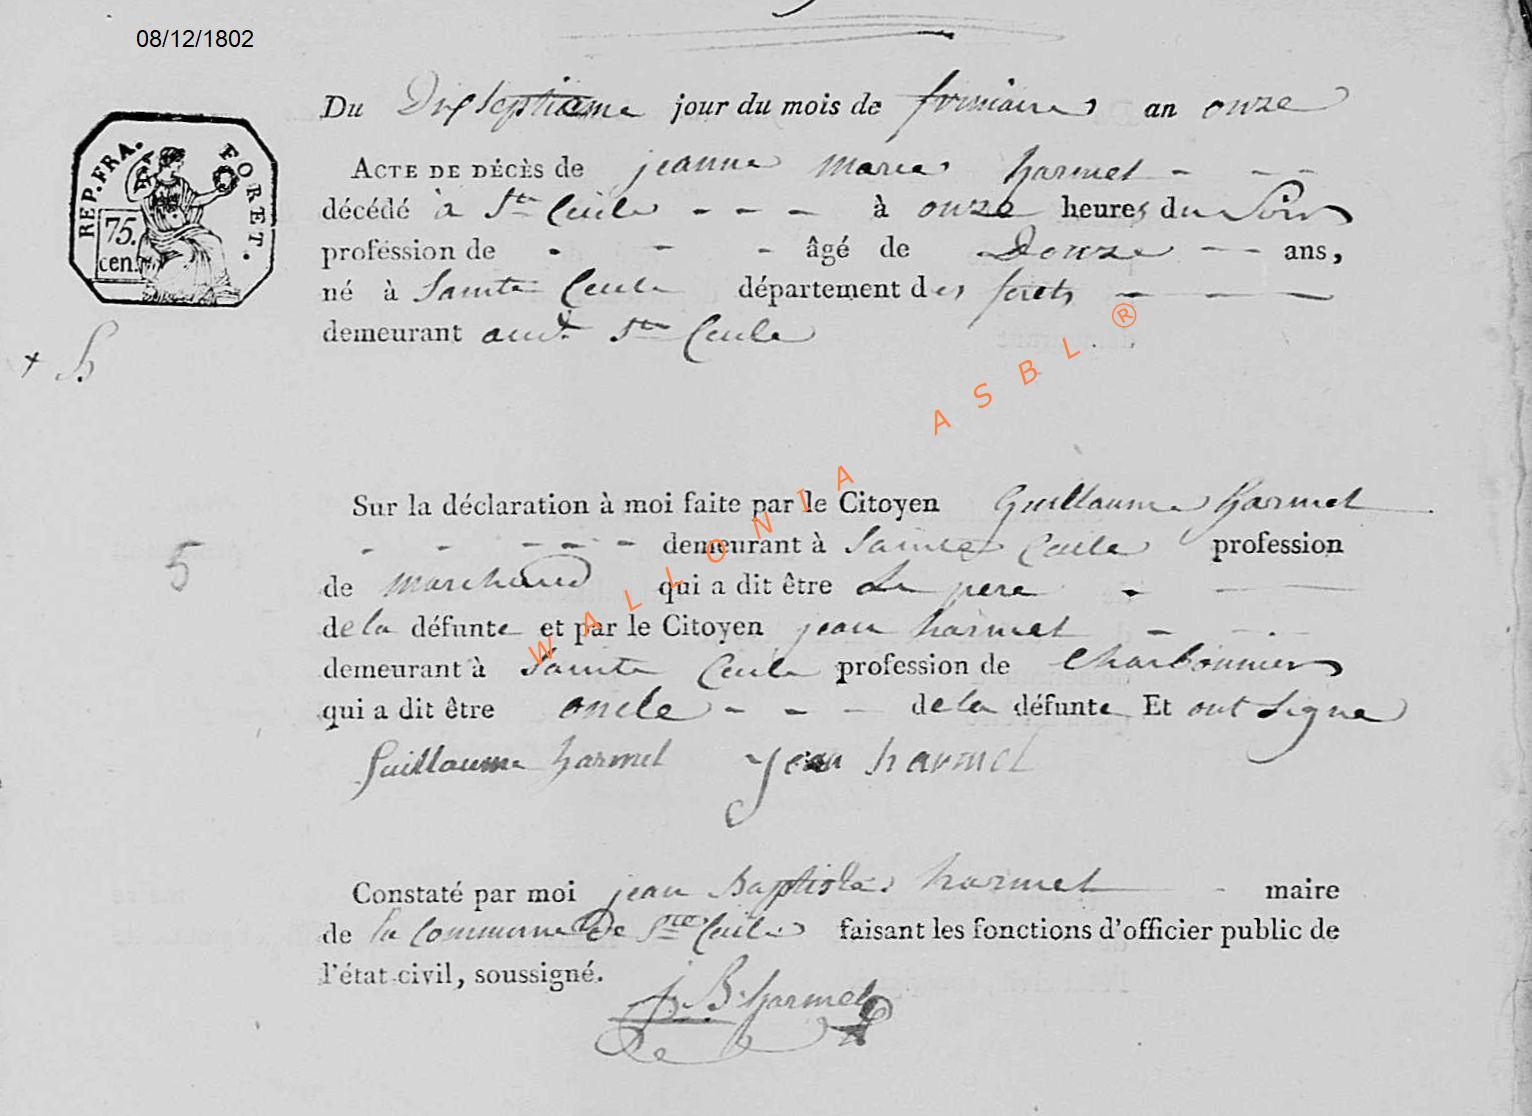 08/12/1802
Du Dixseptieme jour du mois de frimaire an onze
REP. FRA. FORET.
75. cen.
ACTE DE DÉCÈS de jeanne marie harmel - - -
décédé à Ste Cecile - - - à onze heures du Soir
profession de - - - âgé de Douze - - ans,
né à Sainte Cecile département des forets - - -
demeurant audt Ste Cecile
+ h
Sur la déclaration à moi faite par le Citoyen Guillaume harmel
- - - - - demeurant à Sainte Cecile profession
5
de marchand qui a dit être Le pere - -
de la défunte et par le Citoyen jean harmel - - -
demeurant à Sainte Cecile profession de Charbonnier
qui a dit être oncle - - - de la défunte Et ont signe
Guillaume harmel jean harmel
Constaté par moi jean Baptiste harmel - maire
de la commune de Ste Cecile faisant les fonctions d'officier public de
l'état civil, soussigné.
J. B. harmel
WALLONIA ASBL ®